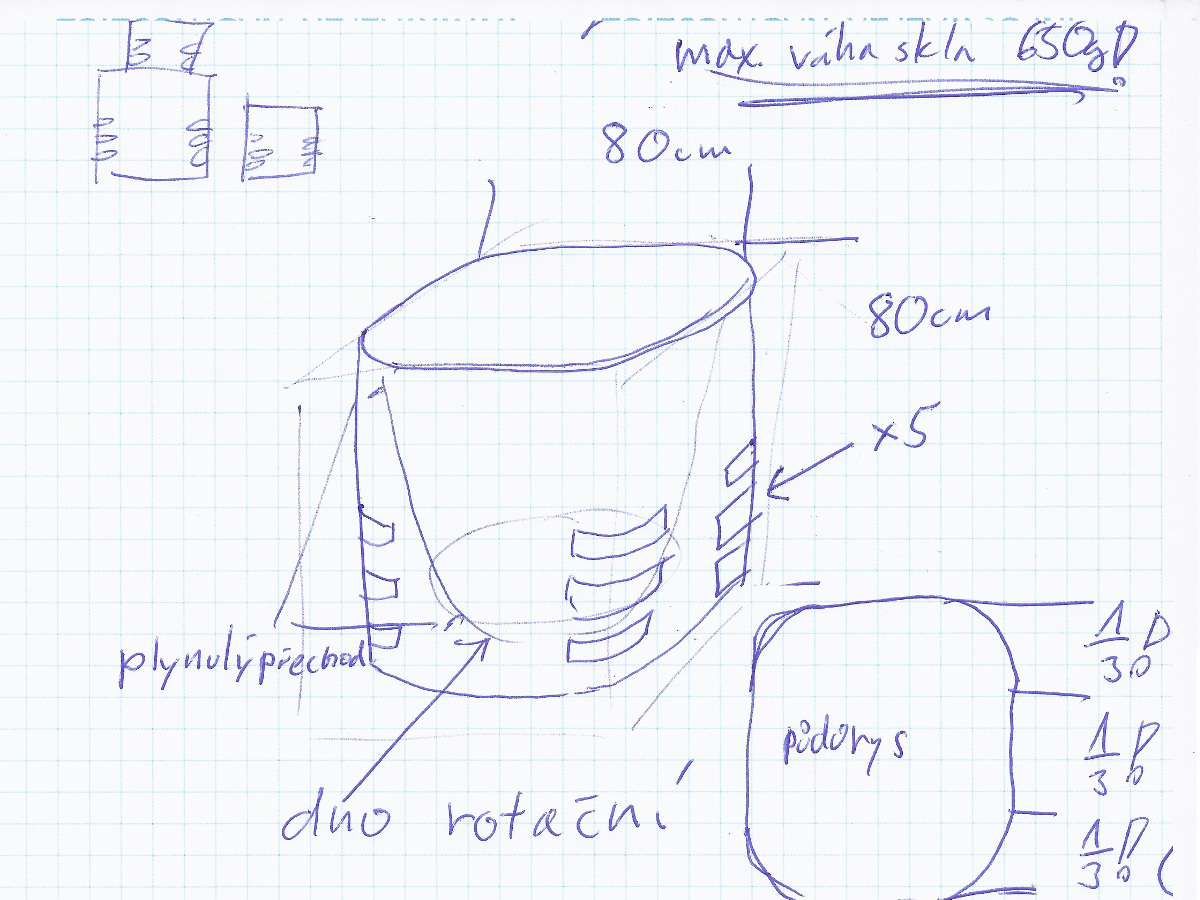 max. váha skla 650g
80cm
80cm
x5
plynulý přechod
1/3
půdorys
1/3
dno rotační
1/3